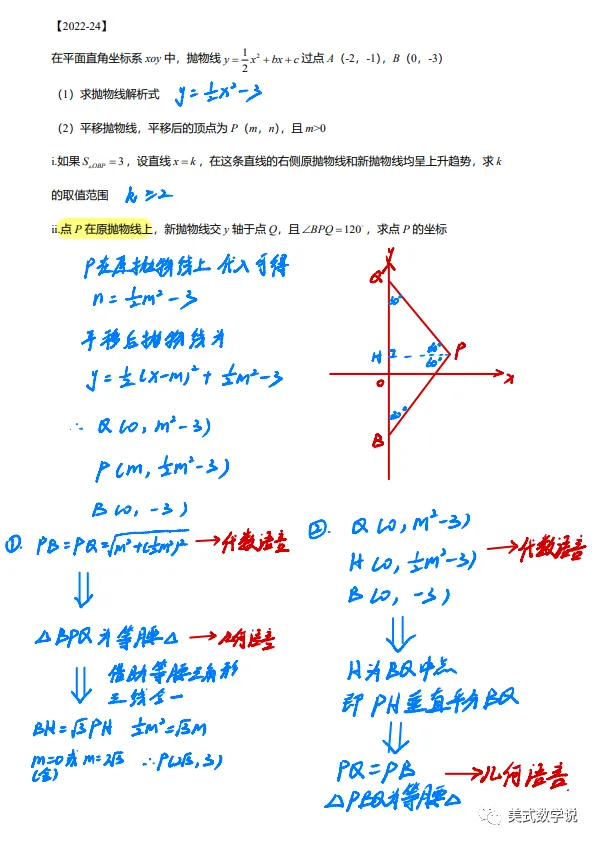 【2022-24】
在平面直角坐标系 xoy 中，抛物线 y = 1/2 x² + bx + c 过点 A（-2，-1），B（0，-3）
（1）求抛物线解析式 y = ½x² - 3
（2）平移抛物线，平移后的顶点为 P（m，n），且 m>0
i.如果 S△OBP = 3，设直线 x = k，在这条直线的右侧原抛物线和新抛物线均呈上升趋势，求 k
的取值范围 k ≥ 2
ii.点 P 在原抛物线上，新抛物线交 y 轴于点 Q，且 ∠BPQ = 120°，求点 P 的坐标
P在原抛物线上 代入可得
n = ½m² - 3
平移后抛物线为
y = ½(x-m)² + ½m² - 3
∴ Q(0, m² - 3)
P(m, ½m² - 3)
B(0, -3)
y
Q
30°
H
60°
60°
P
O
x
30°
B
①. PB = PQ = √m² + (½m²)² → 代数语言
△BPQ为等腰△ → 几何语言
借助等腰三角形
三线合一
BH = √3 PH ½m² = √3m
m=0 或 m=2√3 ∴ P(2√3, 3)
(舍)
②. Q(0, m² - 3)
H(0, ½m² - 3) → 代数语言
B(0, -3)
H为BQ中点
即 PH垂直平分BQ
PQ = PB → 几何语言
△PBQ为等腰△
美式数学说